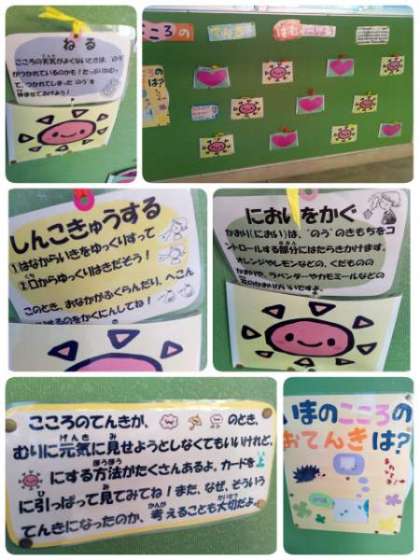 ねる
こころの天気がよくないときは、のうが
つかれているのかも！たっぷりねむっ
て、つかれてしまった「のう」を
休ませてあげよう！
こころの
しんこきゅうする
1.はなからいきをゆっくりすって
2.口からゆっくりはきだそう！
このとき、おなかがふくらんだり、へこん
だりするのをかくにんしてね！
においをかぐ
かおり（におい）は、"のう"のきもちを
コントロールする部分にはたらきかけます。
オレンジやレモンなどの、くだものの
かおりや、ラベンダーやカモミールなどの
こころのてんきが、のとき、
むりに元気に見せようとしなくてもいいけれど、
にする方法がたくさんあるよ。カードを上
に引っぱって見てみてね！また、なぜ、そういう
てんきになったのか、考えることも大切だよ。
いまのこころの
おてんきは？